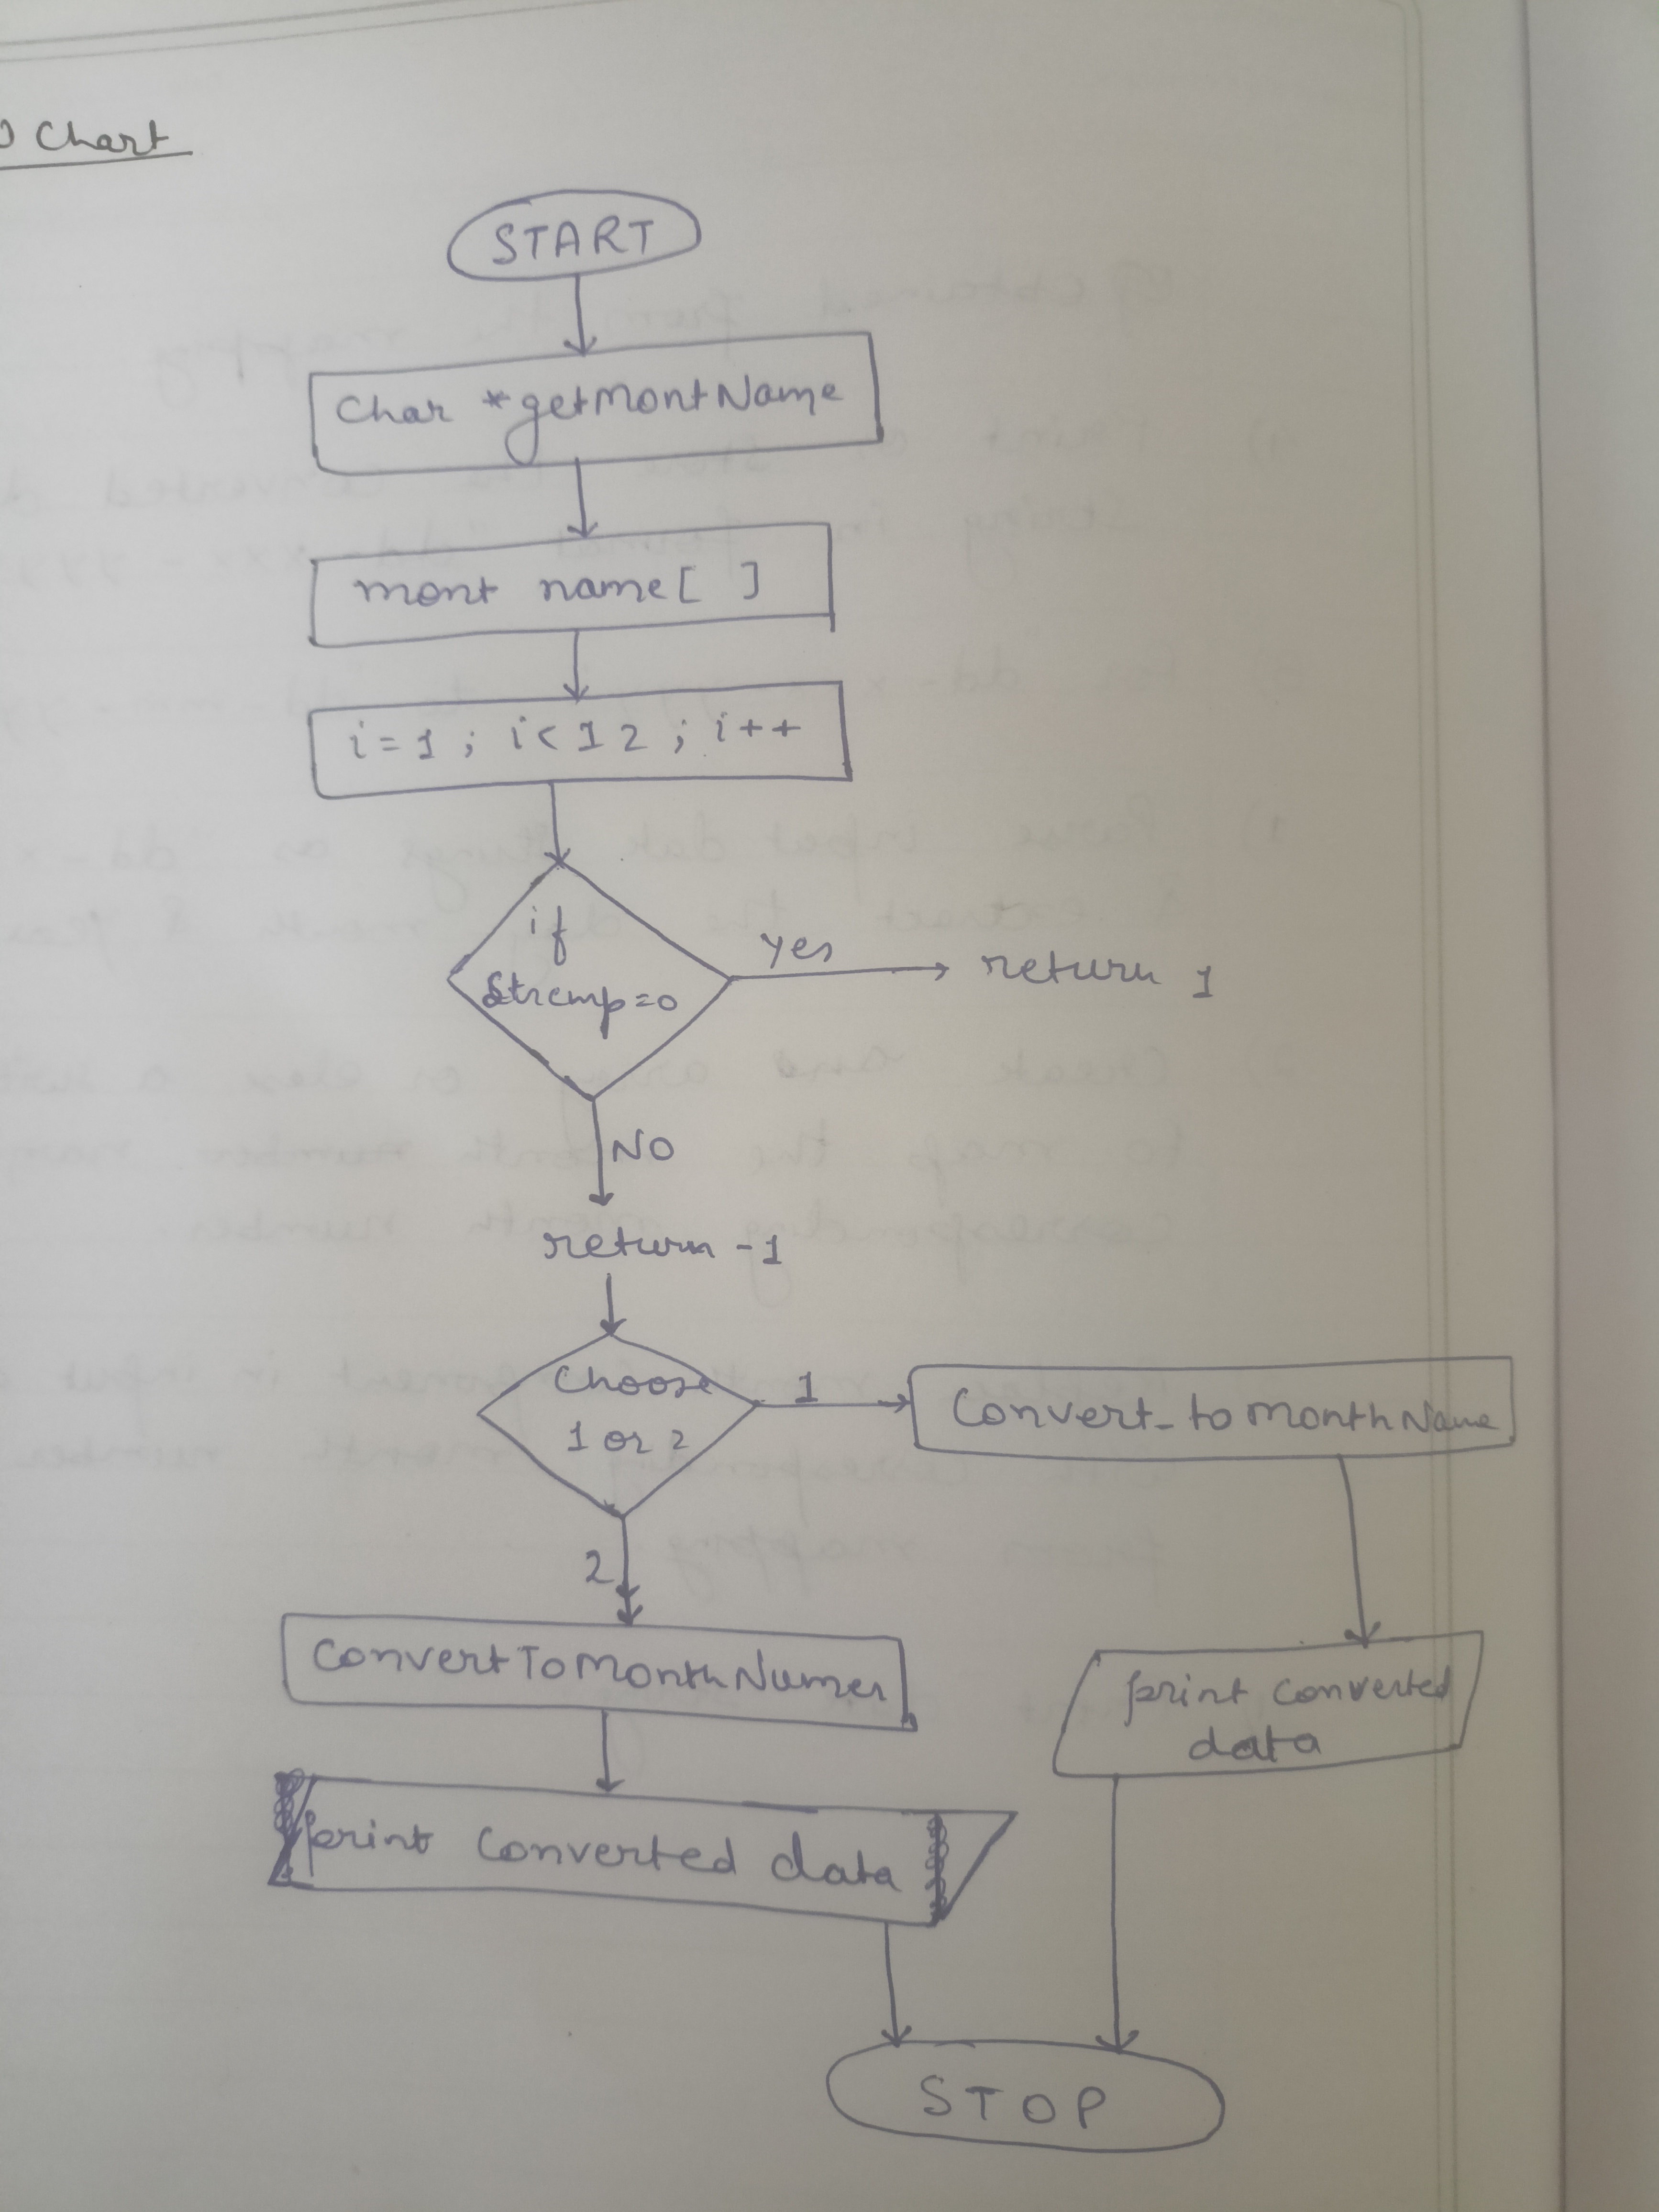 Chart
START
Char *getMontName
mont name[ ]
i=1 ; i<12 ; i++
if
Strcmp=0
yes
return 1
NO
return -1
Choose
1 or 2
1
Convert_to MonthName
2
ConvertToMonthNumer
print converted
data
print converted data
STOP